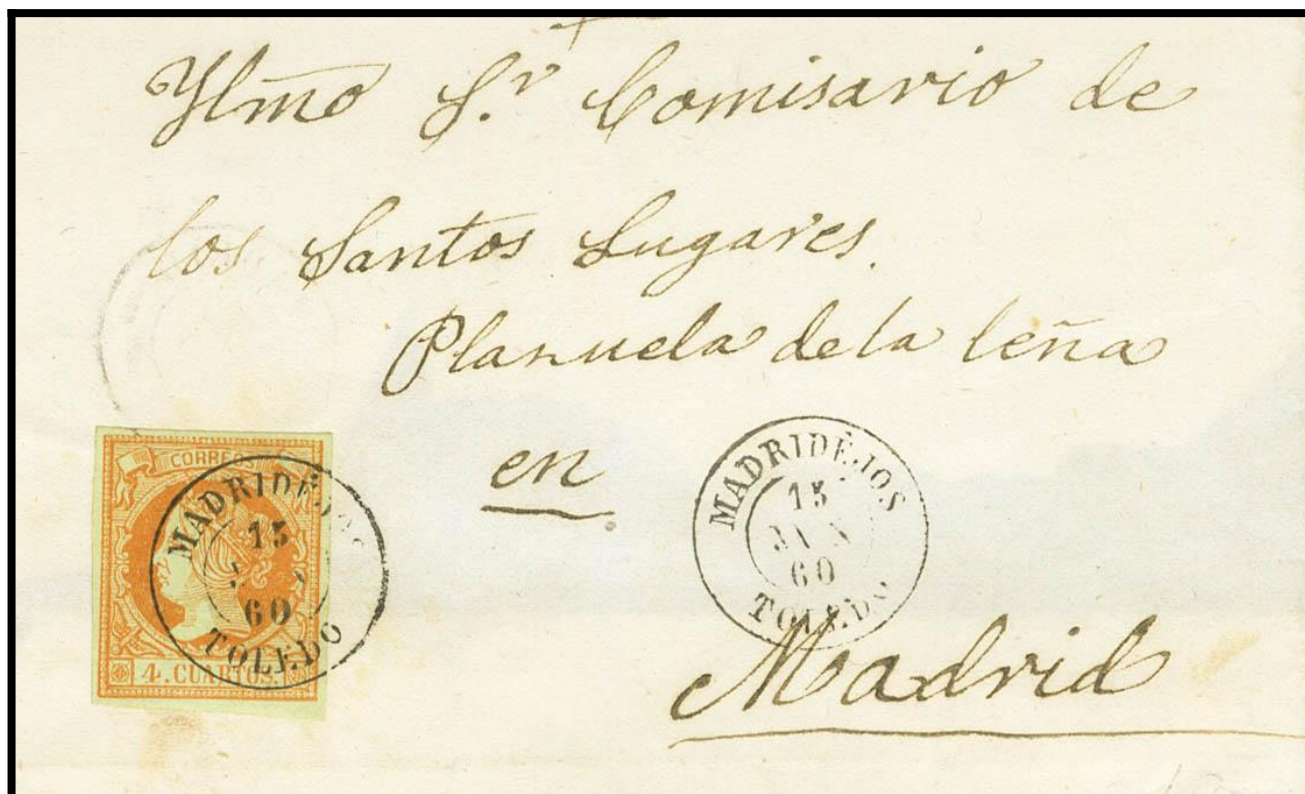 Ylmo S.r Comisario de
los Santos Lugares.
Planuela de la leña
en
Madrid
CORREOS
MADRIDEJOS
15
60
TOLEDO
4. CUARTOS
MADRIDÉJOS
15
60
TOLEDO